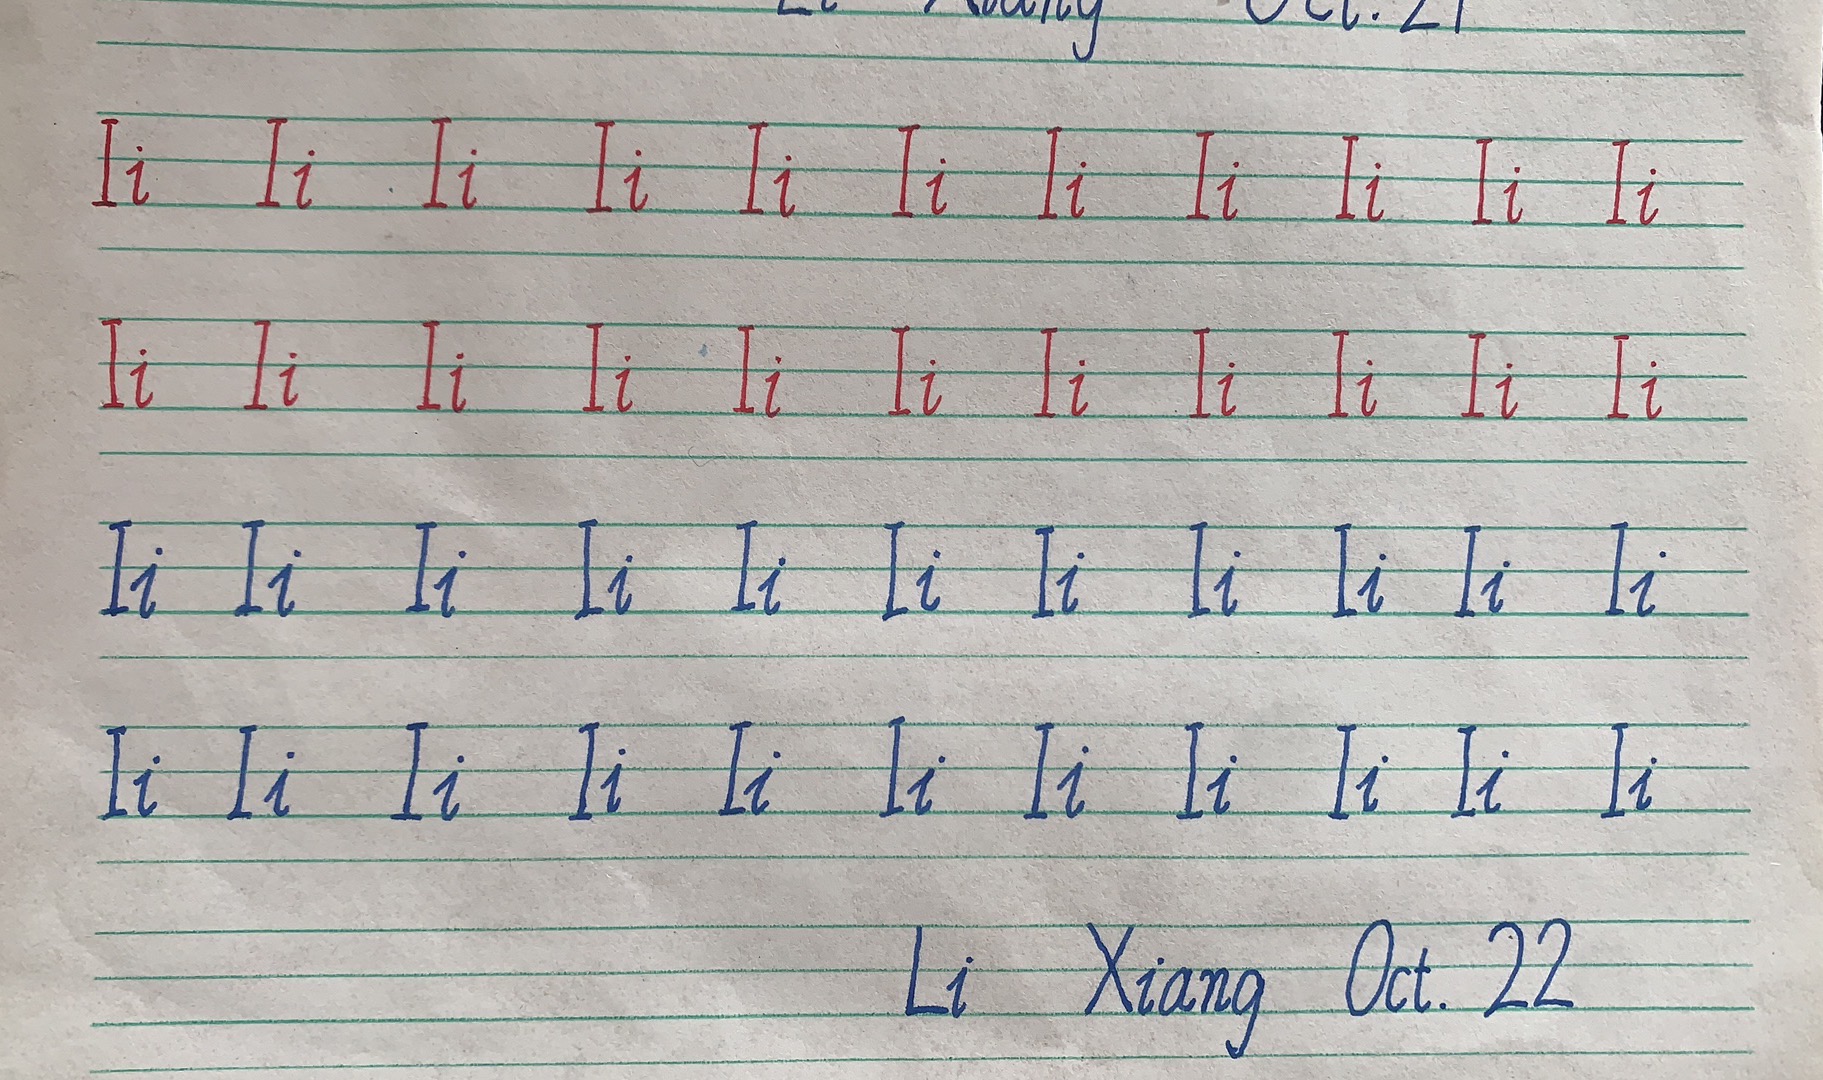 Li Xiang Oct. 21
Ii Ii Ii Ii Ii Ii Ii Ii Ii Ii Ii
Ii Ii Ii Ii Ii Ii Ii Ii Ii Ii Ii
Ii Ii Ii Ii Ii Ii Ii Ii Ii Ii Ii
Ii Ii Ii Ii Ii Ii Ii Ii Ii Ii Ii
Li Xiang Oct. 22